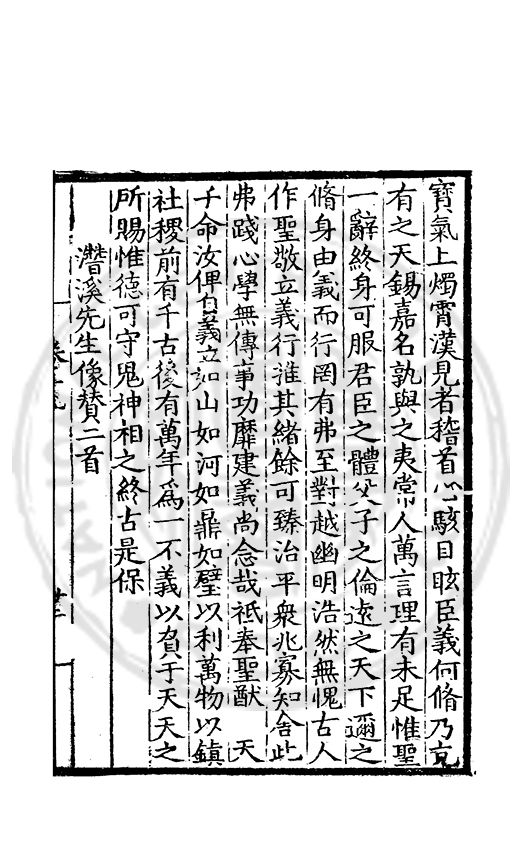 寶氣上燭霄漢見者稽首心駭目眩臣義何脩乃克
有之天錫嘉名孰與之夷常人萬言理有未足惟聖
一辭終身可服君臣之體父子之倫遠之天下邇之
脩身由義而行罔有弗至對越幽明浩然無愧古人
作聖敬立義行推其緒餘可臻治平衆兆寡知舍此
弗踐心學無傳事功靡建義尚念哉祗奉聖猷　天
子命汝俾負義立如山如河如鼎如璧以利萬物以鎮
社稷前有千古後有萬年爲一不義以負于天天之
所賜惟德可守鬼神相之終古是保
濳溪先生像賛二首